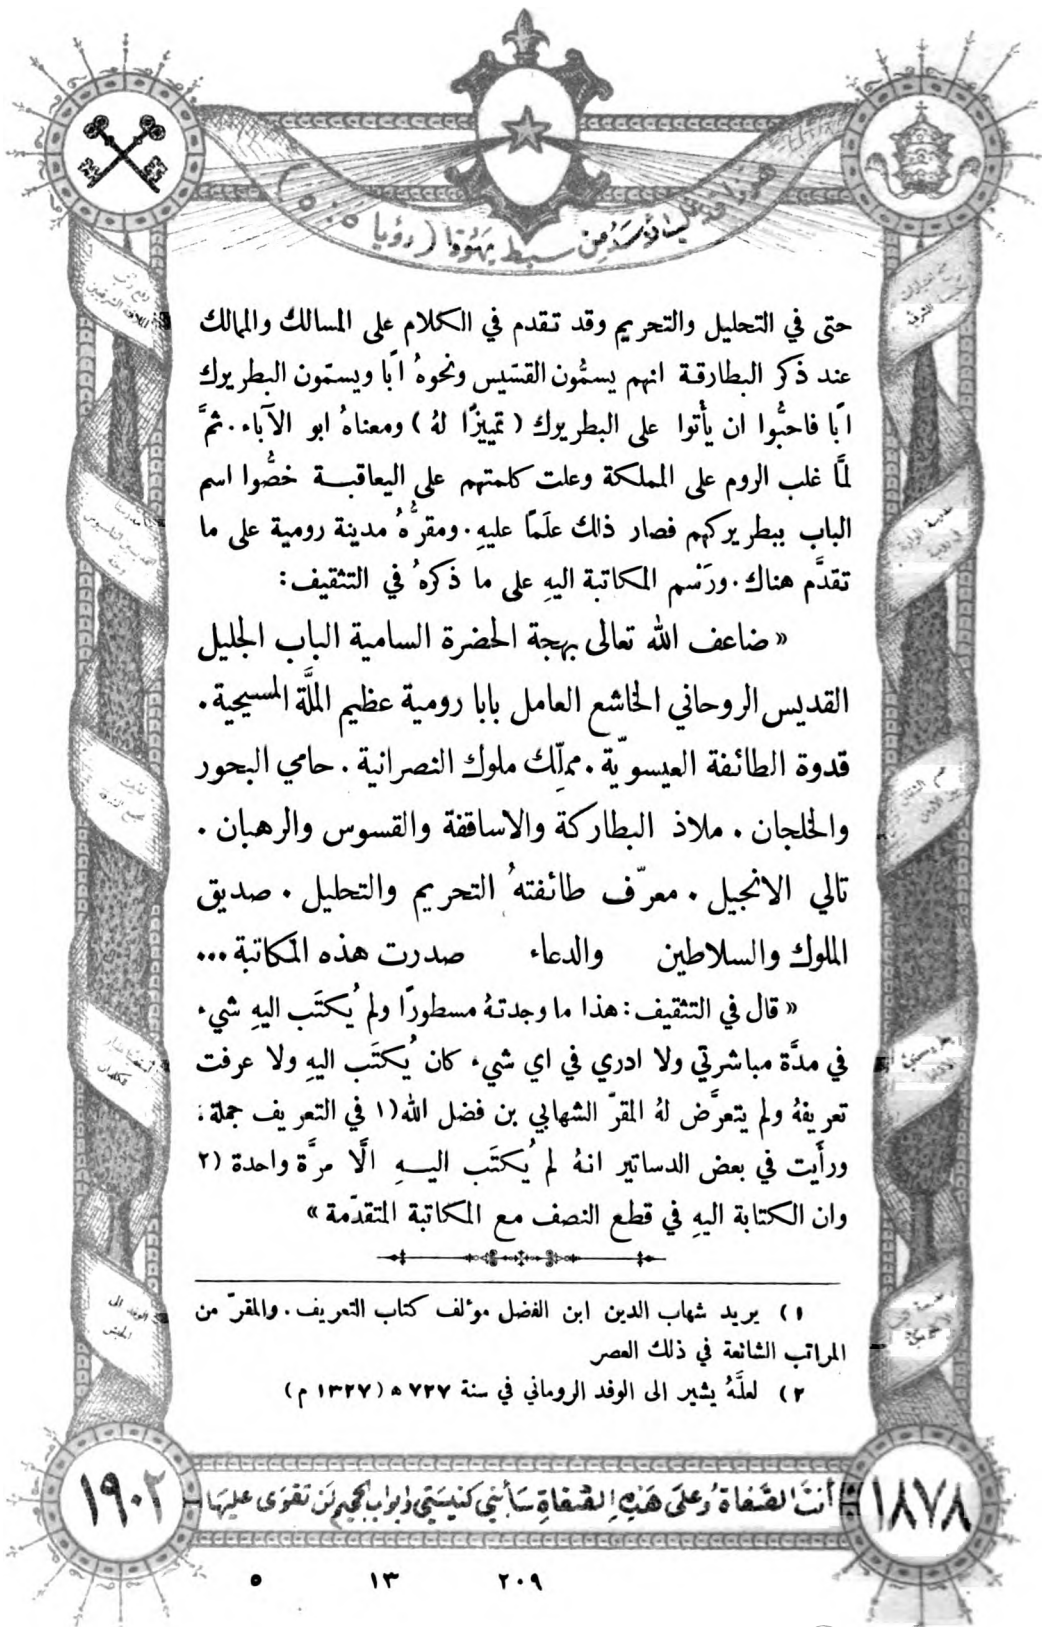 سبط يهوذا (رؤيا ٥:٥)
حتى في التحليل والتحريم وقد تقدم في الكلام على المسالك والممالك
عند ذكر البطارقة انهم يسمُّون القسّيس ونحوهُ ابًا ويسمّون البطريرك
ابًا فاحبُّوا ان يأْتوا على البطريرك (تمييزًا لهُ) ومعناهُ ابو الآباء. ثمَّ
لمَّا غلب الروم على المملكة وعلت كلمتهم على اليعاقبة خصُّوا اسم
الباب ببطريركهم فصار ذلك علَمًا عليهِ. ومقرُّهُ مدينة رومية على ما
تقدَّم هناك. ورَسْم المكاتبة اليهِ على ما ذكرهُ في التثقيف:
« ضاعف الله تعالى بهجة الحضرة السامية الباب الجليل
القديس الروحاني الخاشع العامل بابا رومية عظيم الملَّة المسيحية.
قدوة الطائفة العيسويّة. مملّك ملوك النصرانية. حامي البحور
والخلجان. ملاذ البطاركة والاساقفة والقسوس والرهبان.
تالي الانجيل. معرّف طائفتهُ التحريم والتحليل. صديق
الملوك والسلاطين والدعاء صدرت هذه المكاتبة...
« قال في التثقيف: هذا ما وجدتهُ مسطورًا ولم يُكتَب اليهِ شيء
في مدَّة مباشرتي ولا ادري في اي شيء كان يُكتَب اليهِ ولا عرفت
تعريفهُ ولم يتعرَّض لهُ المقرّ الشهابي بن فضل الله(١ في التعريف جملة،
ورأَيت في بعض الدساتير انهُ لم يُكتَب اليهِ الَّا مرَّة واحدة (٢
وان الكتابة اليهِ في قطع النصف مع المكاتبة المتقدّمة »
١) يريد شهاب الدين ابن الفضل موٴلف كتاب التعريف. والمقرّ من
المراتب الشائعة في ذلك العصر
٢) لعلَّهُ يشير الى الوفد الروماني في سنة ٧٢٧ ه (١٣٢٧ م)
١٨٧٨
أنت الصَّفاة وعلى هذه الصَّفاة سأبني كنيستي وابواب الجحيم لن تقوى عليها
١٩٠٢
٢٠٩ ١٣ ٥